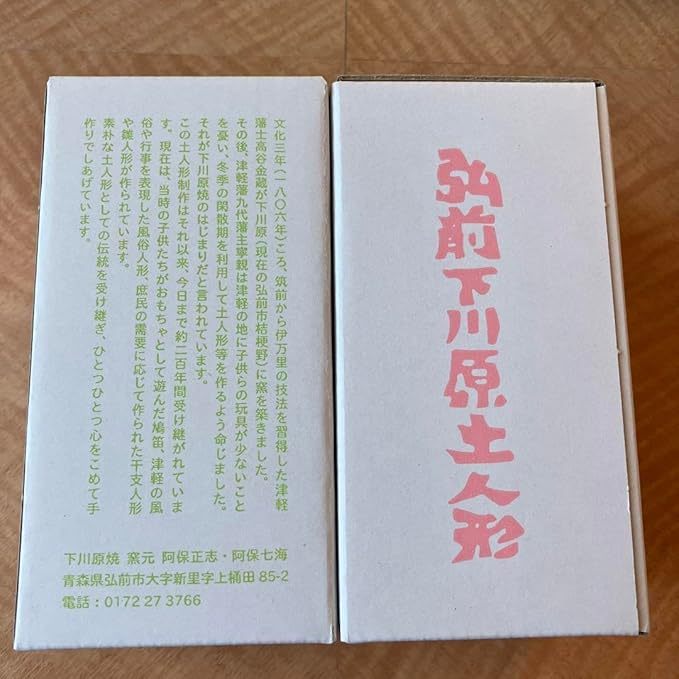 文化三年(一八〇六年)ごろ、筑前から伊万里の技法を習得した津軽
藩士高谷金蔵が下川原(現在の弘前市桔梗野)に窯を築きました。
その後、津軽藩九代藩主寧親は津軽の地に子供らの玩具が少ないこと
を憂い、冬季の閑散期を利用して土人形等を作るよう命じました。
それが下川原焼のはじまりだと言われています。
この土人形制作はそれ以来、今日まで約二百年間受け継がれていま
す。現在は、当時の子供たちがおもちゃとして遊んだ鳩笛、津軽の風
俗や行事を表現した風俗人形、庶民の需要に応じて作られた干支人形
や雛人形が作られています。
素朴な土人形としての伝統を受け継ぎ、ひとつひとつ心をこめて手
作りでしあげています。
下川原焼 窯元 阿保正志・阿保七海
青森県弘前市大字新里字上桶田 85-2
電話:0172 27 3766
弘前下川原土人形